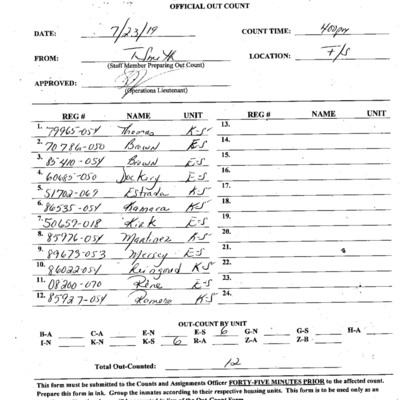 OFFICIAL OUT COUNT
DATE: 7/23/19 COUNT TIME: 400pm
FROM: DSmith LOCATION: F/S
(Staff Member Preparing Out Count)
APPROVED:
(Operations Lieutenant)
REG # NAME UNIT REG # NAME UNIT
1. 79965-054 Thomas K-S 13.
2. 70786-050 Brown E-S 14.
3. 85410-054 Brown E-S 15.
4. 60685-050 E-S 16.
5. 51702-069 Estrada K-S 17.
6. 86535-054 Kamara K-S 18.
7. 50659-018 Kirk E-S 19.
8. 85976-054 Martinez K-S 20.
9. 89673-053 Mersey E-S 21.
10. 86022-054 K-S 22.
11. 08200-070 Rene E-S 23.
12. 85927-054 Romero K-S 24.
OUT-COUNT BY UNIT
B-A C-A E-N E-S 6 G-N G-S H-A
I-N K-N K-S 6 R-A Z-A Z-B
Total Out-Counted: 12
This form must be submitted to the Counts and Assignments Officer FORTY-FIVE MINUTES PRIOR to the affected count.
Prepare this form in ink. Group the inmates according to their respective housing units. This form is to be used only as an